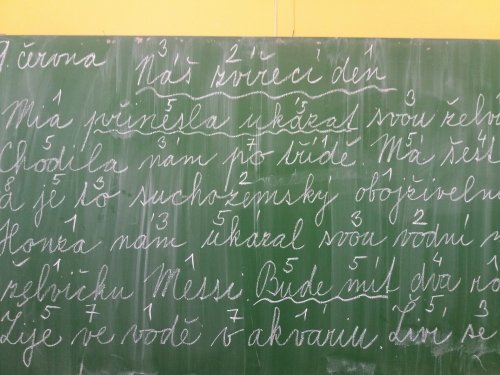 3 2 1
9. června Náš zvířecí den
1 5 5 3
Mia přinesla ukázat svou želvi
5 3 7 1 5 4
Chodila nám po třídě. Má šest
8 5 3 2 1
a je to suchozemský obojživeln
1 3 5 3 2
Honza nám ukázal svou vodní
1 1 5 5 4
želvičku Messi. Bude mít dva ro
5 7 1 7 1 5 3
Žije ve vodě v akváriu. Živí se